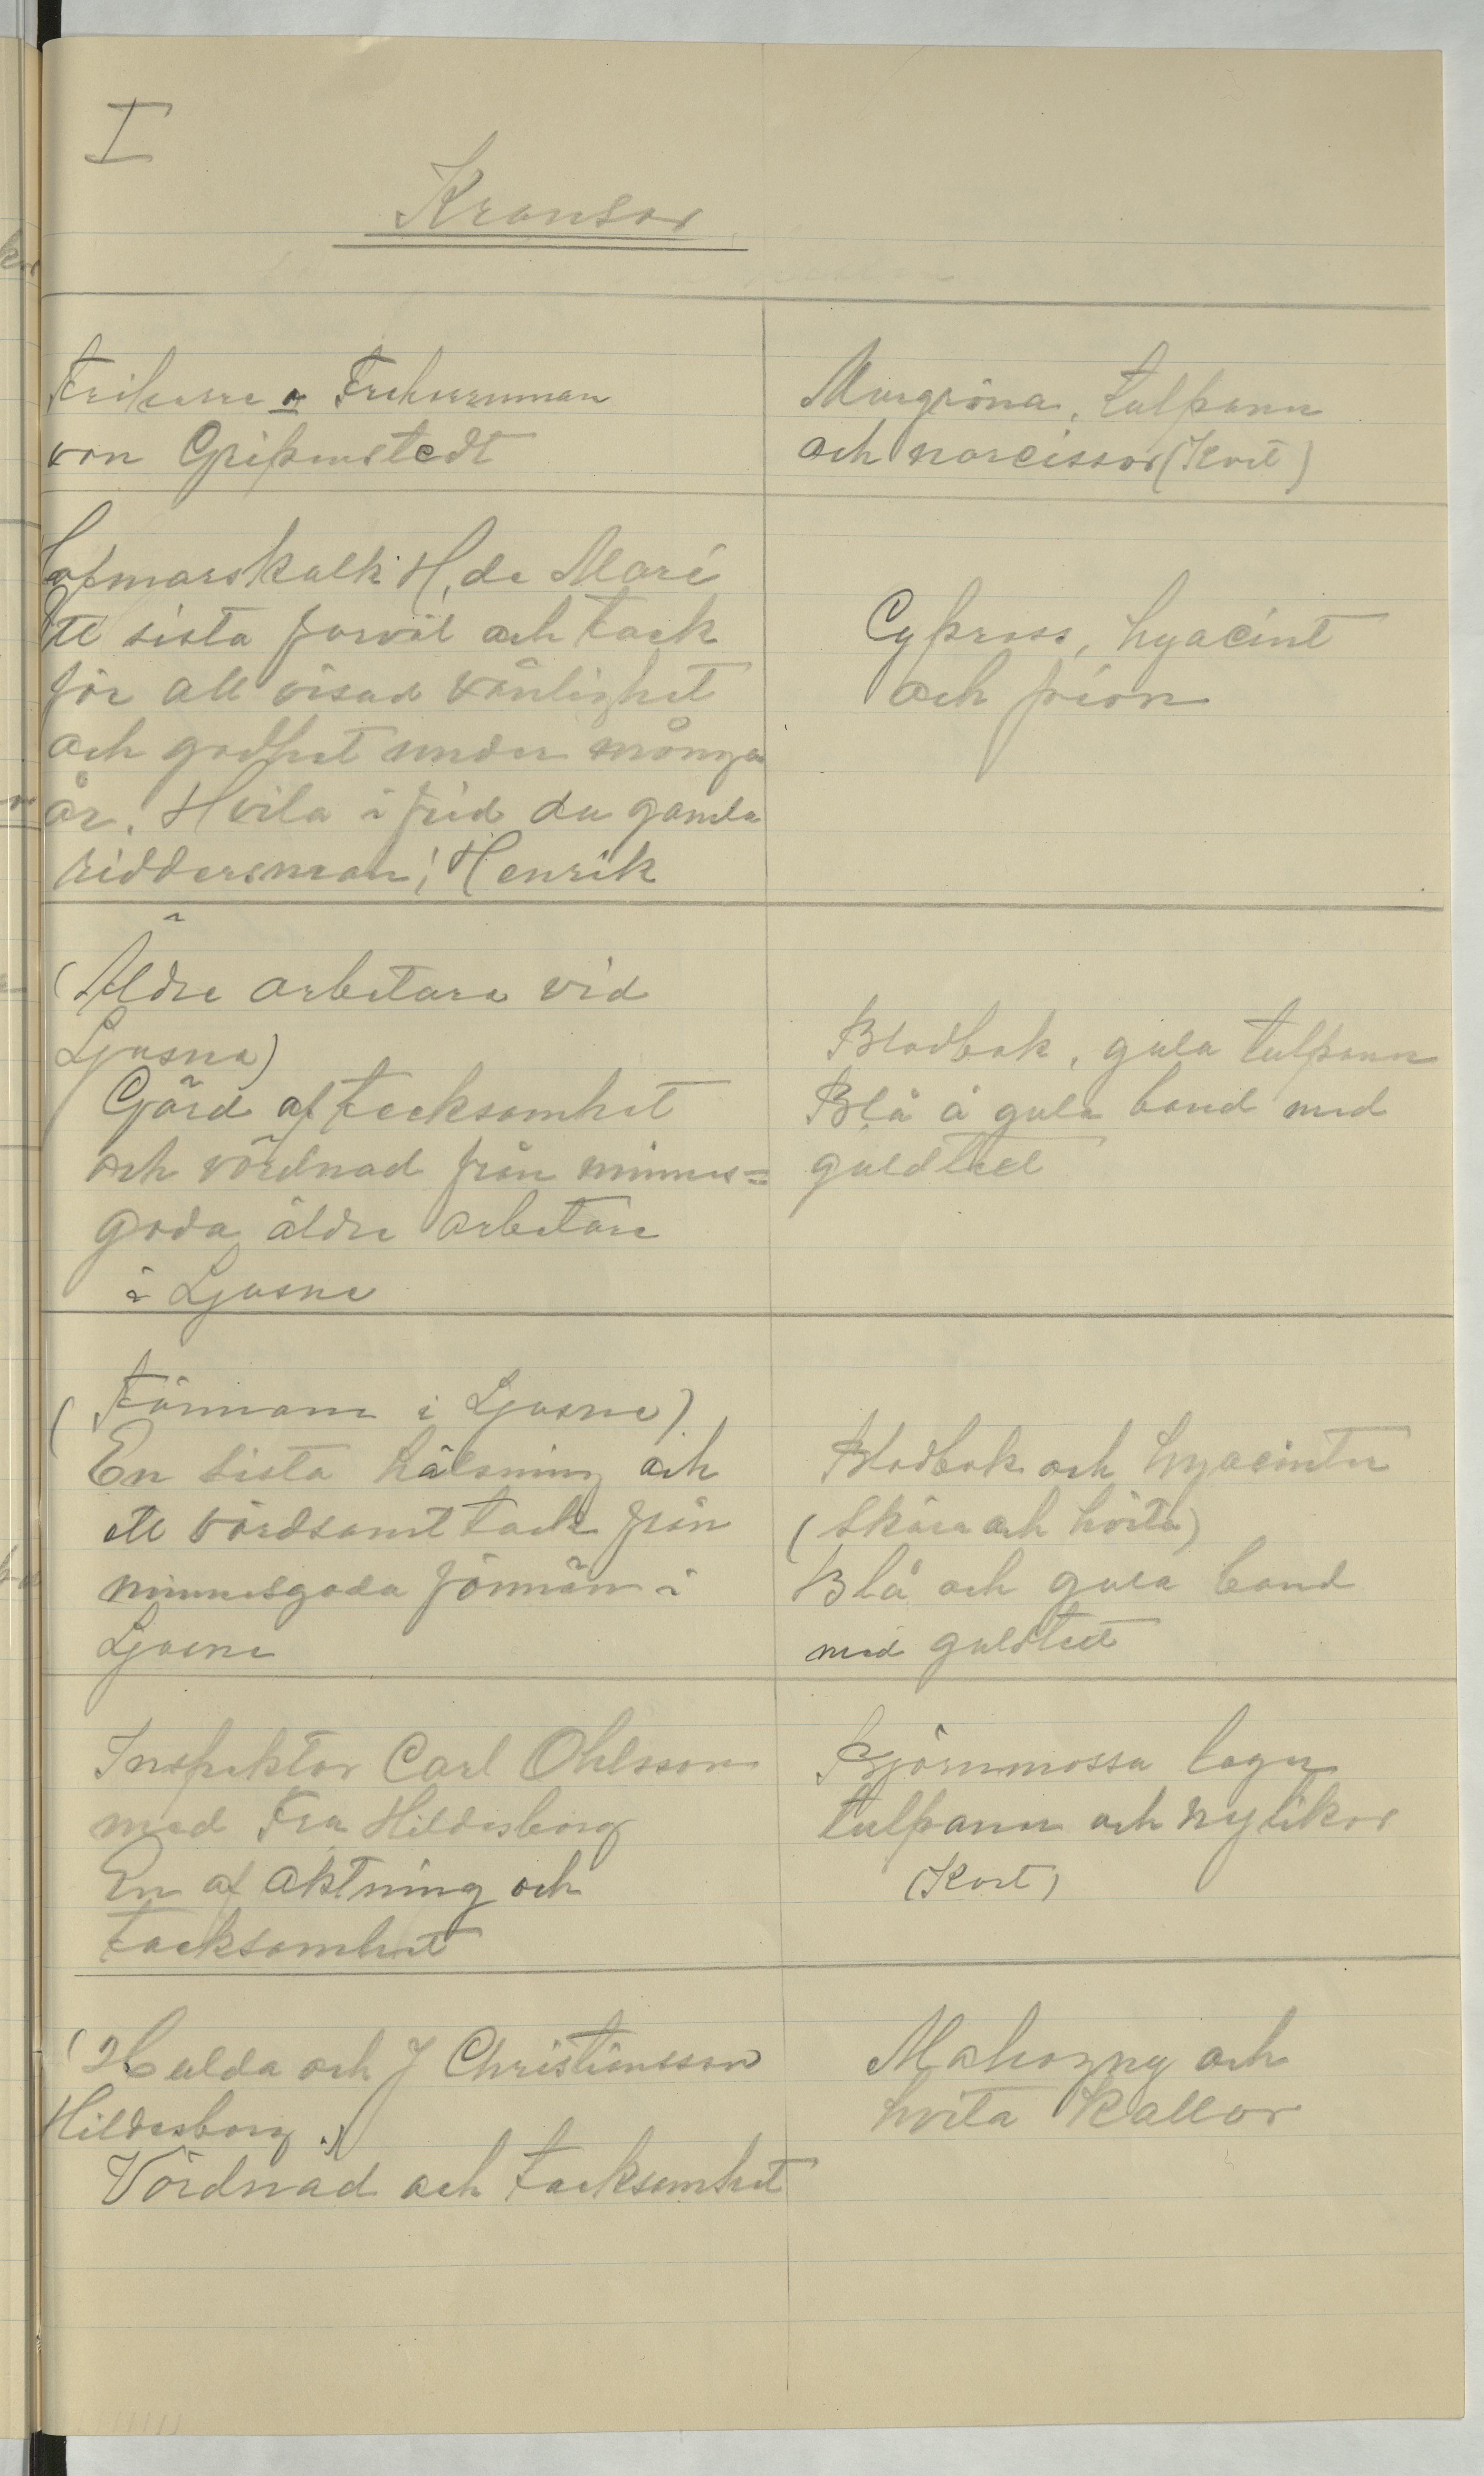 I
Kransar
Friherre o Friherrinnan
von Gripenstedt
Murgröna, tulpaner
och narcisser (Kort)
Hofmarskalk H. de Maré
Ett sista farväl och tack
för all visad vänlighet
och godhet under många
år. Hvila i frid du gamla
riddersman! Henrik
Cypress, hyacint
och pion
(Äldre arbetare vid
Ljusne)
Gärd af tacksamhet
och vördnad från minnes=
goda äldre arbetare
i Ljusne
Blodbok, gula tulpaner
Blå å gula band med
guldtext
(Förmann i Ljusne)
En sista hälsning och
ett vördsamt tack från
minnesgoda förmän i
Ljusne
Blodbok och hyacinter
(skära och hvita)
Blå och gula band
med guldtext
Inspektor Carl Ohlsson
med Fru Hildesborg
En af aktning och
tacksamhet
Björnmossa lager
tulpaner och nejlikor
(Kort)
(Hulda och J Christiansson
Hildesborg.)
Vördnad och tacksamhet
Mahogny och
hvita Kallor